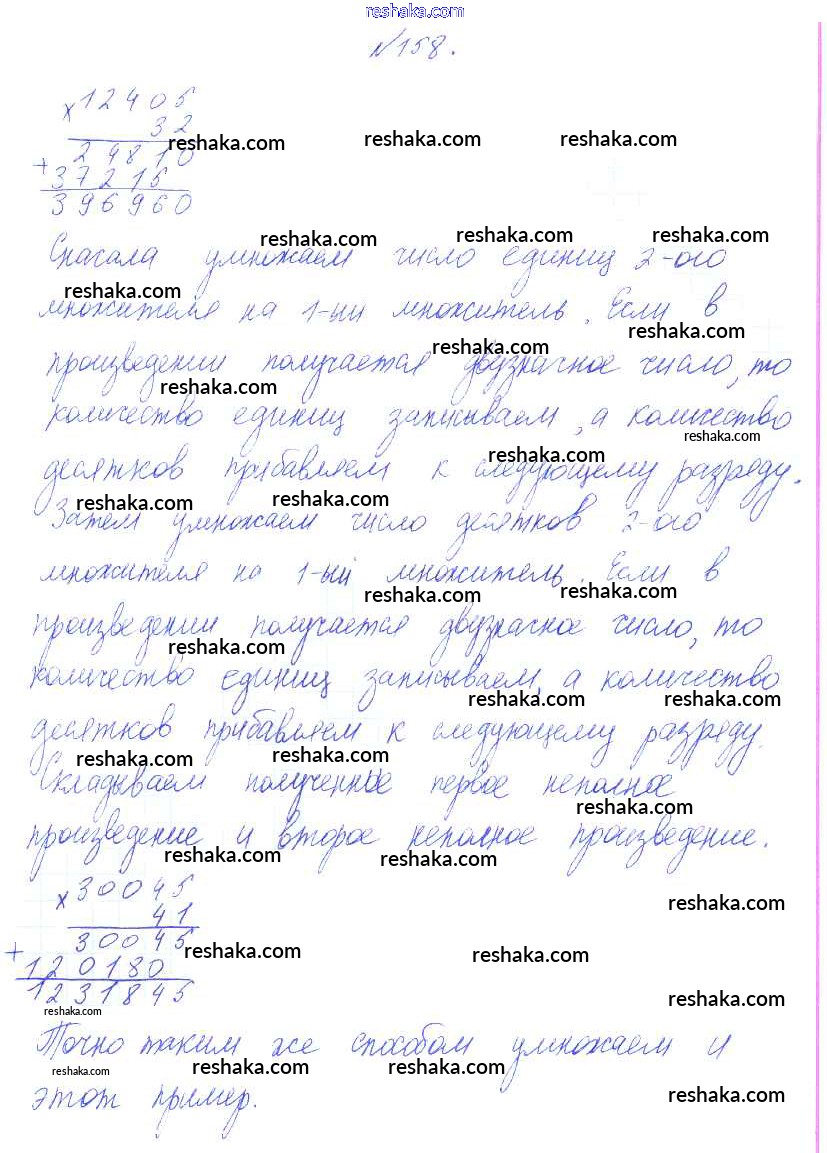 reshaka.com
№158.
× 12405
32
reshaka.com reshaka.com reshaka.com
+ 24810
37215
396960
reshaka.com reshaka.com reshaka.com
Сначала умножаем число единиц 2-ого
reshaka.com
множителя на 1-ый множитель. Если в
reshaka.com reshaka.com
произведении получается двузначное число, то
reshaka.com
количество единиц записываем, а количество
reshaka.com reshaka.com
десятков прибавляем к следующему разряду.
reshaka.com reshaka.com
Затем умножаем число десятков 2-ого
множителя на 1-ый множитель. Если в
reshaka.com reshaka.com
произведении получается двузначное число, то
reshaka.com
количество единиц записываем, а количество
reshaka.com reshaka.com
десятков прибавляем к следующему разряду.
reshaka.com reshaka.com
Складываем полученное первое неполное
reshaka.com
произведение и второе неполное произведение.
reshaka.com reshaka.com
× 30045
41
reshaka.com
+ 30045
reshaka.com reshaka.com
120180
1231845
reshaka.com
reshaka.com
Точно таким же способом умножаем и
reshaka.com reshaka.com reshaka.com reshaka.com
этот пример.
reshaka.com